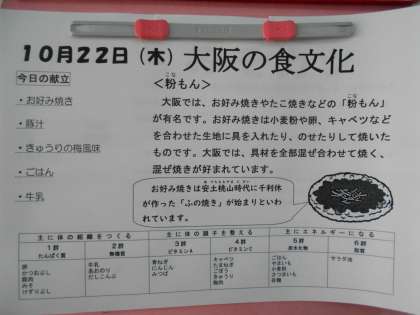 10月22日（木）大阪の食文化
今日の献立
・お好み焼き
・豚汁
・きゅうりの梅風味
・ごはん
・牛乳
＜粉もん＞
こな
大阪では、お好み焼きやたこ焼きなどの「粉もん」
こな
が有名です。お好み焼きは小麦粉や卵、キャベツなど
を合わせた生地に具を入れたり、のせたりして焼いた
ものです。大阪では、具材を全部混ぜ合わせて焼く、
混ぜ焼きが好まれています。
お好み焼きは安土桃山時代に千利休
が作った「ふの焼き」が始まりといわ
れています。
主に体の組織をつくる 主に体の調子を整える 主にエネルギーになる
1群 2群 3群 4群 5群 6群
たんぱく質 無機質 ビタミンA ビタミンC 炭水化物 脂質
卵 牛乳 青ねぎ キャベツ ごはん サラダ油
かつおぶし あおのり にんじん たまねぎ やまいも
豚肉 だしこんぶ みつば ごぼう 小麦粉
みそ きゅうり さつまいも
けずりぶし 梅肉 砂糖